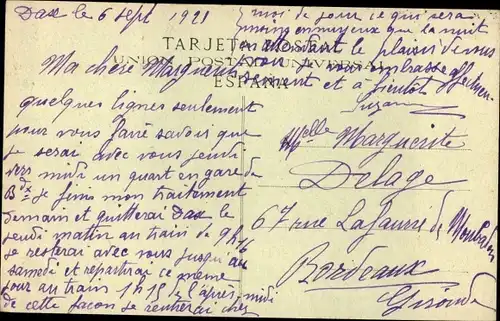 Dax le 6 sept 1921
TARJETA POSTAL
UNION POSTAL UNIVERSAL
ESPAÑA
Ma chère Marguerite
quelques lignes seulement
pour vous faire savoir que
je serai avec vous jeudi
vers midi un quart en gare de
Bdx je finis mon traitement
demain et quitterai Dax le
jeudi matin au train de 9h16
je resterai avec vous jusqu'au
samedi et repartirai ce même
jour au train 1h15 de l'après-midi
de cette façon je rentrerai chez
moi de jour ce qui sera
moins ennuyeux que la nuit
en attendant le plaisir de vous
voir je vous embrasse affectueu-
sement et à bientôt
Suzanne
Mlle Marguerite
Delage
67 rue
Bordeaux
Gironde